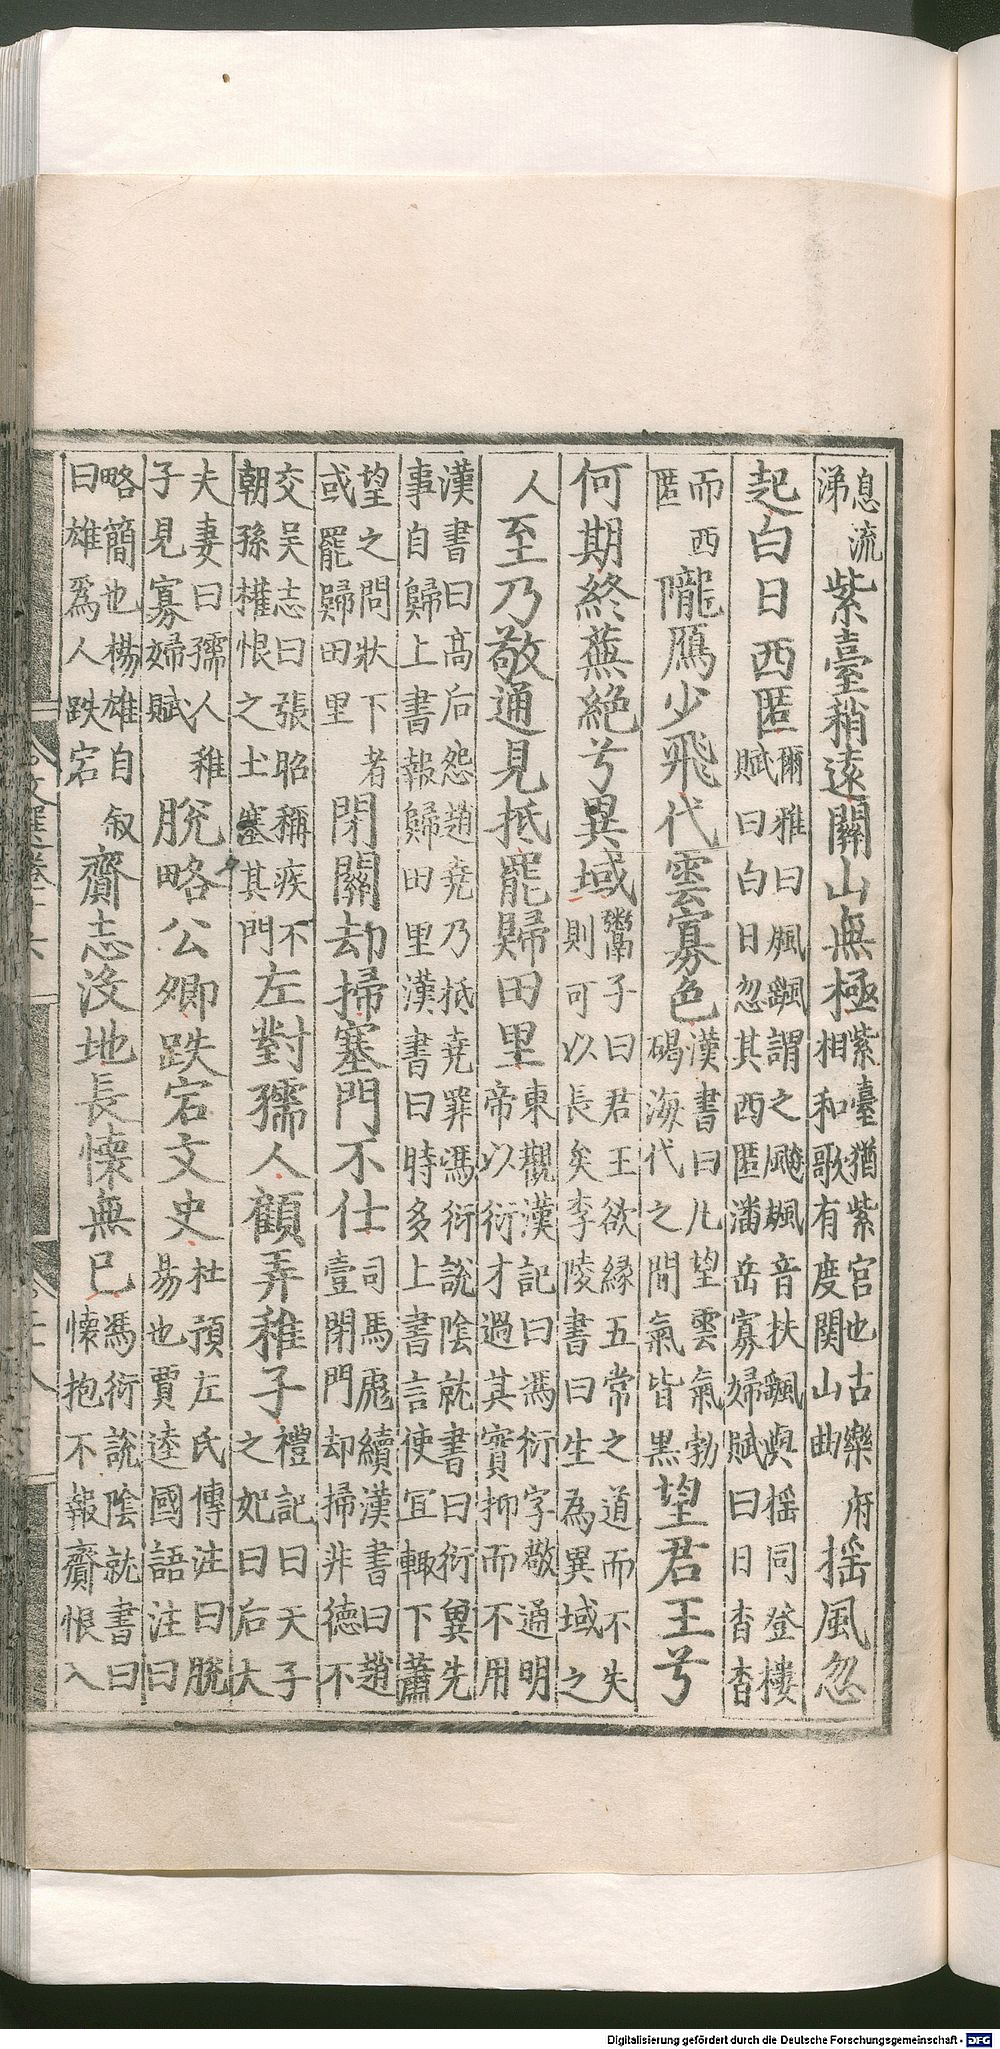 息流
涕
紫臺稍遠關山無極
紫臺猶紫宮也古樂府
相和歌有度関山曲
揺風忽
起白日西匿
爾雅曰颻颻謂之飈颻音扶颻與揺同登樓
賦曰白日忽其西匿潘岳寡婦賦曰日杳杳
而西
匿
隴鴈少飛代雲寡色
漢書曰凢望雲氣勃
碣海代之間氣皆黒
望君王兮
何期終蕪絶兮異域
鬻子曰君王欲縁五常之道而不失
則可以長矣李陵書曰生為異域之
人
至乃敬通見抵罷歸田里
東觀漢記曰馮衍字敬通明
帝以衍才過其實抑而不用
漢書曰高后怨趙堯乃抵堯罪馮衍說陰就書曰衍兾先
事自歸上書報歸田里漢書曰時多上書言使冝輙下蕭
望之問狀下者
或罷歸田里
閉關却掃塞門不仕
司馬彪續漢書曰趙
壹閉門却掃非德不
交吴志曰張昭稱疾不
朝孫權恨之土塞其門
左對孺人顧弄稚子
禮記曰天子
之妃曰后大
夫妻曰孺人稚
子見寡婦賦
脫略公卿跌宕文史
杜預左氏傳注曰脫
易也賈逵國語注曰
略簡也楊雄自叙
曰雄爲人跌宕
齎志没地長懷無已
馮衍說陰就書曰
懷抱不報齎恨入
Digitalisierung gefördert durch die Deutsche Forschungsgemeinschaft - DFG